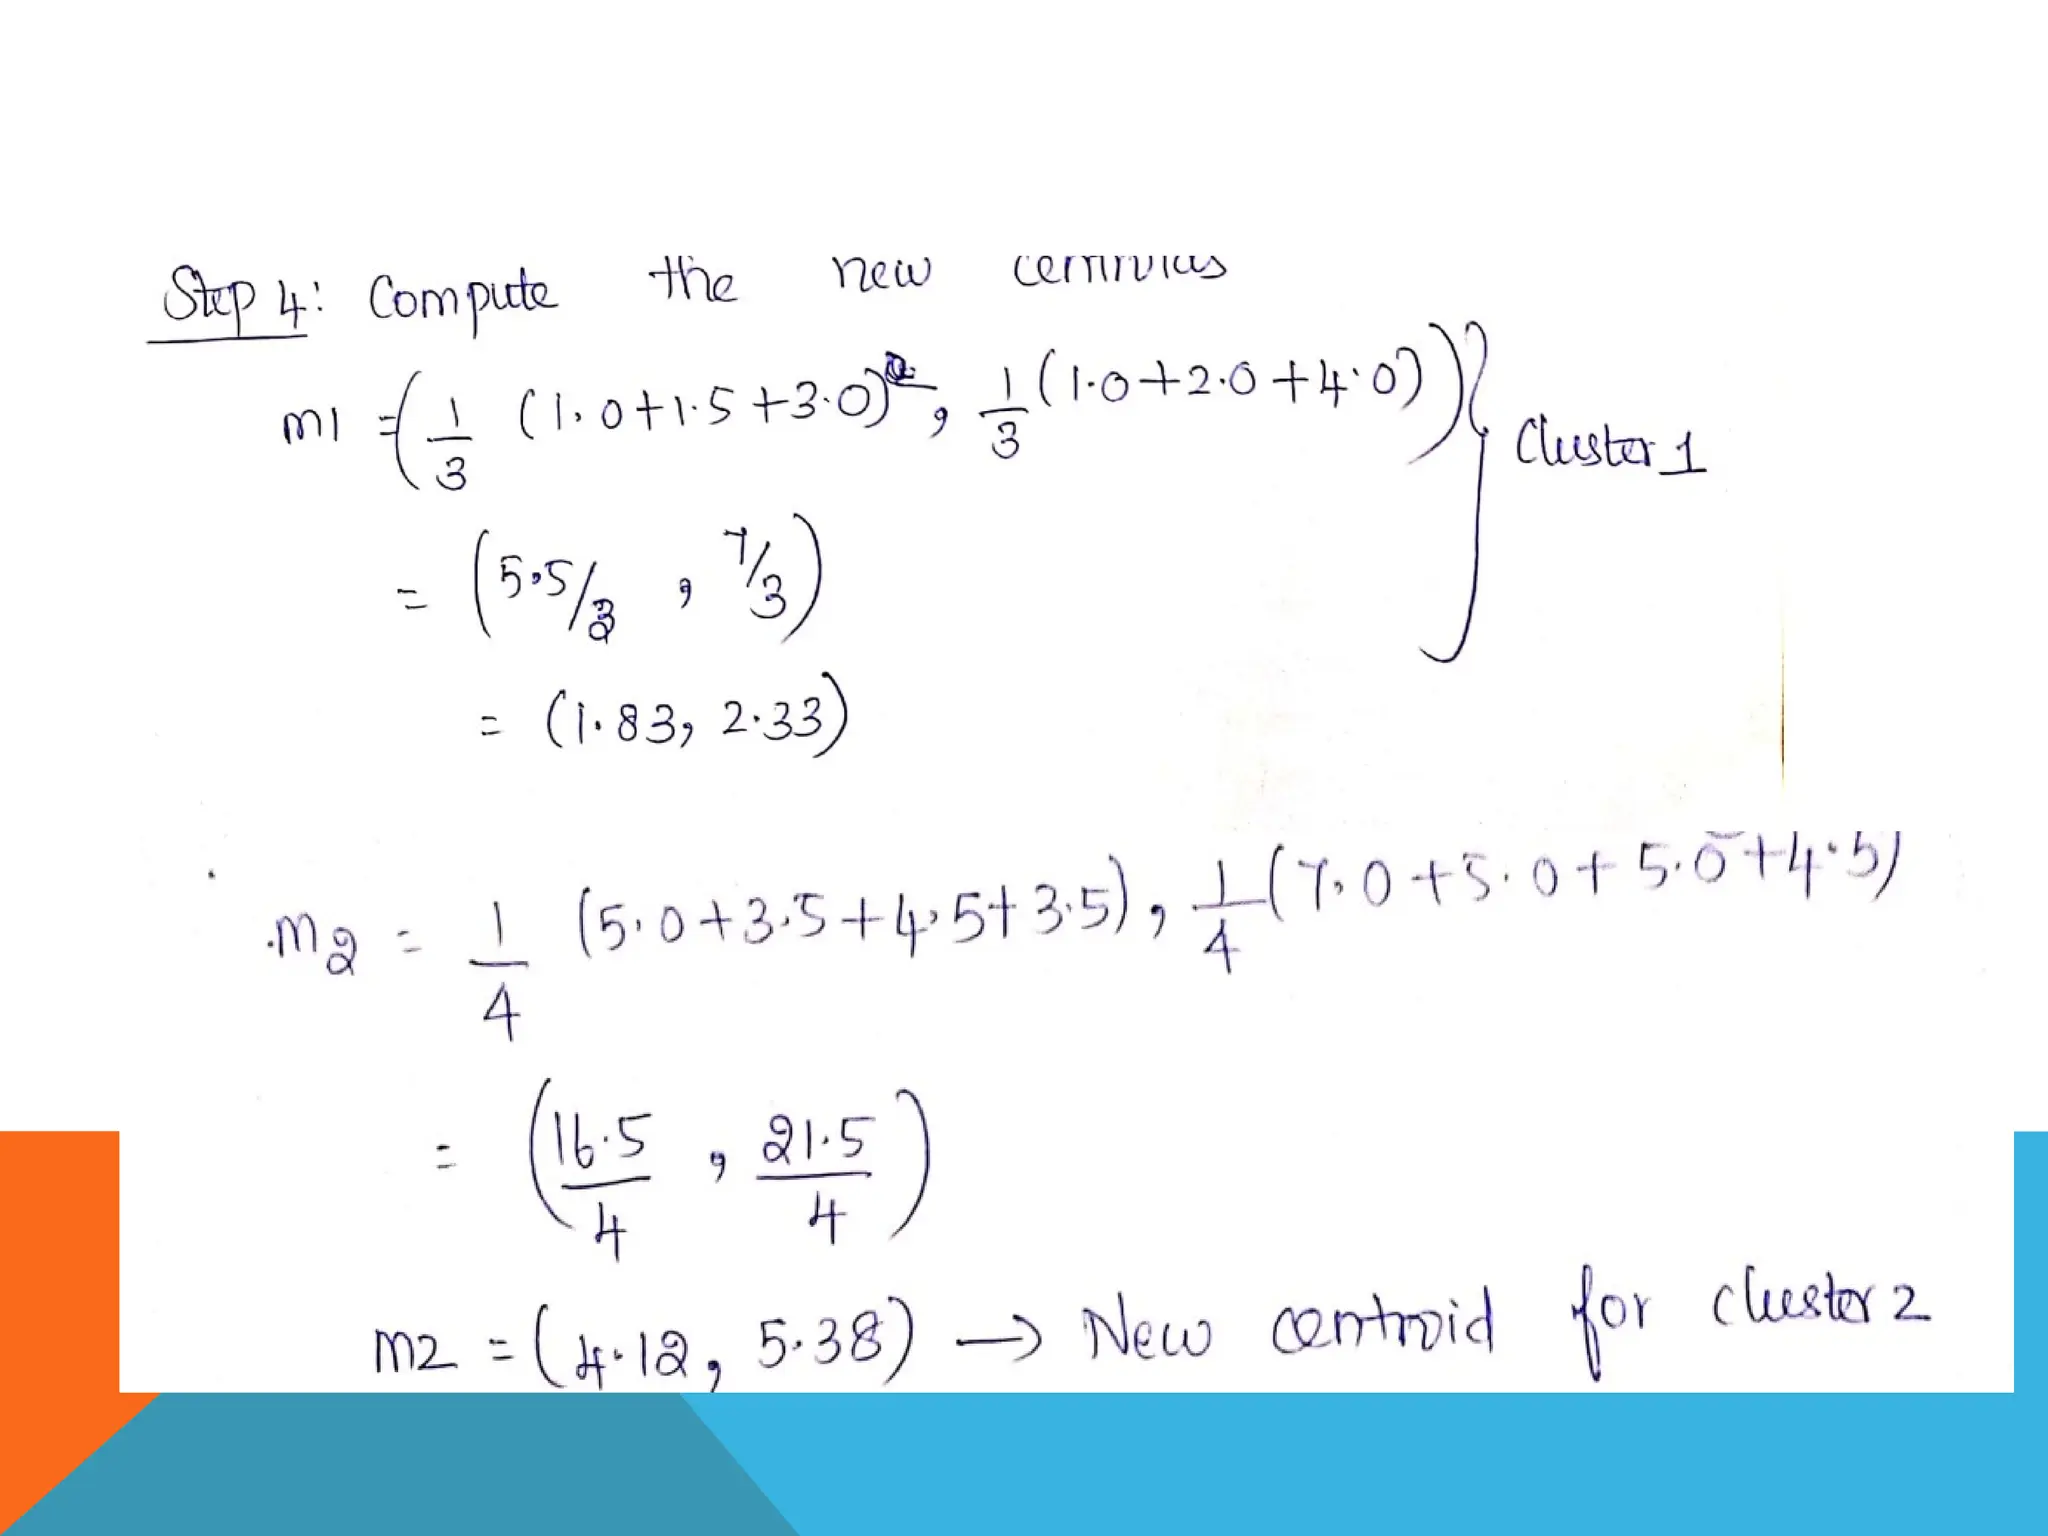 Step 4: Compute the new centroids
m1 = ( 1/3 (1.0+1.5+3.0), 1/3 (1.0+2.0+4.0) ) } Cluster 1
= (5.5/3 , 7/3)
= (1.83, 2.33)
m2 = 1/4 (5.0+3.5+4.5+3.5), 1/4 (7.0+5.0+5.0+4.5)
= ( 16.5/4 , 21.5/4 )
m2 = (4.12, 5.38) → New centroid for cluster 2